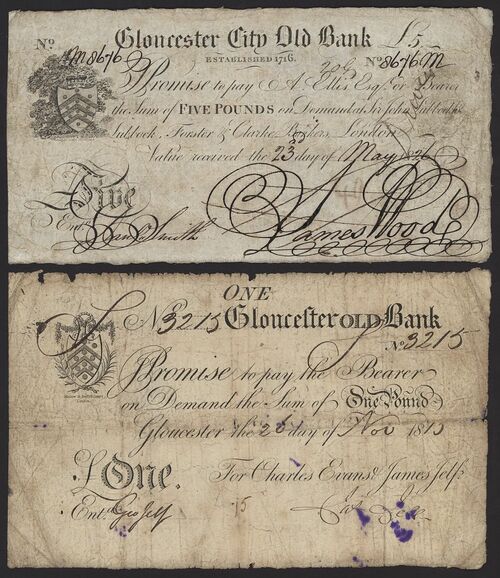 Gloucester City Old Bank £5
ESTABLISHED 1716.
No. M8676 No. 8676 M
I Promise to pay A Ellis Esqr. or Bearer
the Sum of FIVE POUNDS on Demand at Sir John Lubbock
Lubbock, Forster & Clarke Bankers London
Value received the 23 day of May 1826
Five
James Wood
Entd. Smith
ONE
No. 3215 Gloucester OLD Bank
No. 3215
I Promise to pay the Bearer
on Demand the Sum of One Pound
Gloucester the 26 day of Nov 181
£One. For Charles Evans & James Jelf.
Entd. Geo Jelf